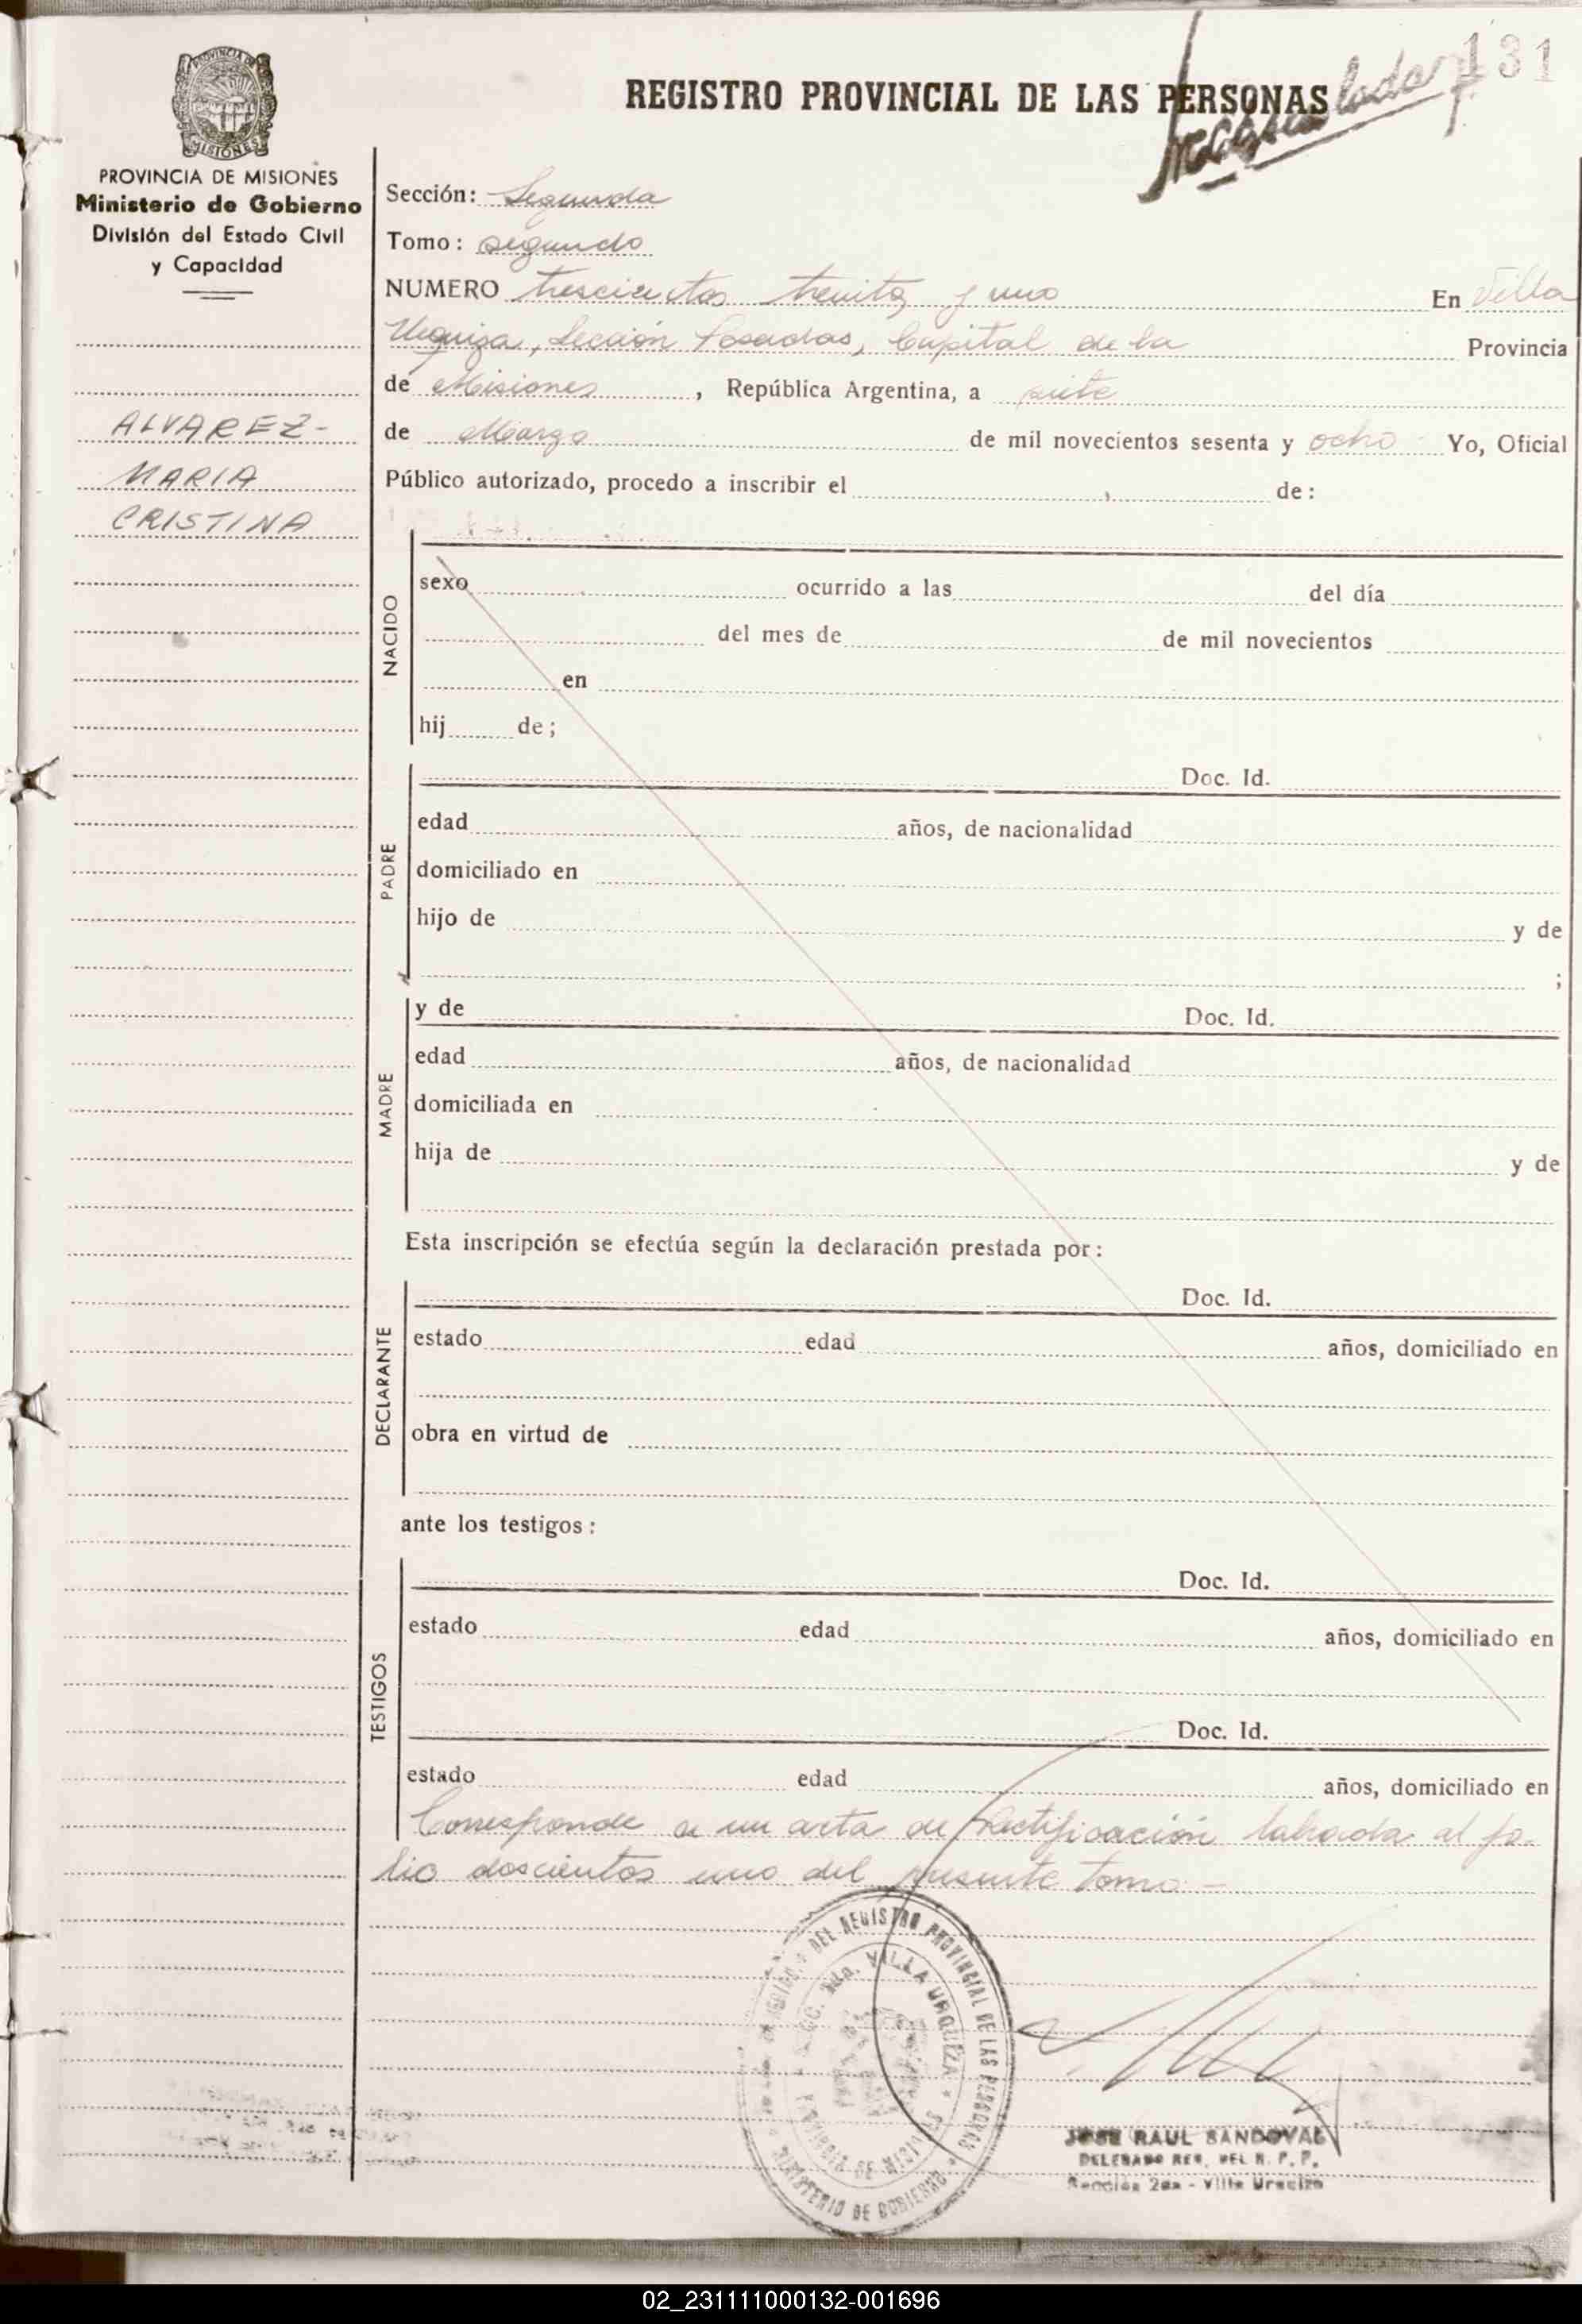 131
REGISTRO PROVINCIAL DE LAS PERSONAS
PROVINCIA DE MISIONES
Ministerio de Gobierno
División del Estado Civil
y Capacidad
Sección: Segunda
Tomo: segundo
NUMERO trescientos treinta y uno En Villa
Urquiza, Sección Posadas, Capital de la Provincia
de Misiones, República Argentina, a siete
de Marzo de mil novecientos sesenta y ocho Yo, Oficial
Público autorizado, procedo a inscribir el de:
ALVAREZ-
MARIA
CRISTINA
NACIDO
sexo ocurrido a las del día
del mes de de mil novecientos
en
hij de;
PADRE
Doc. Id.
edad años, de nacionalidad
domiciliado en
hijo de y de
;
MADRE
y de Doc. Id.
edad años, de nacionalidad
domiciliada en
hija de y de
Esta inscripción se efectúa según la declaración prestada por:
DECLARANTE
Doc. Id.
estado edad años, domiciliado en
obra en virtud de
ante los testigos:
TESTIGOS
Doc. Id.
estado edad años, domiciliado en
Doc. Id.
estado edad años, domiciliado en
Corresponde a un acta de Rectificación labrada al fo-
lio doscientos uno del presente tomo-
DEL REGISTRO PROVINCIAL DE LAS PERSONAS
VILLA URQUIZA
MINISTERIO DE GOBIERNO
JOSE RAUL SANDOVAL
DELEGADO REG. DEL R. P. P.
Sección 2da - Villa Urquiza
02_231111000132-001696